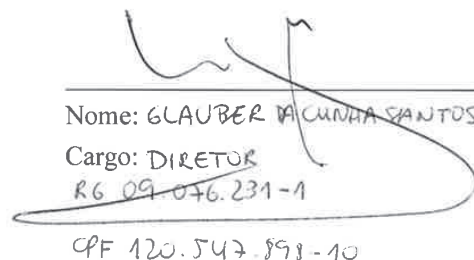 Nome: GLAUBER DA CUNHA SANTOS
Cargo: DIRETOR
RG 09.076.231-1
CPF 120.547.898-10